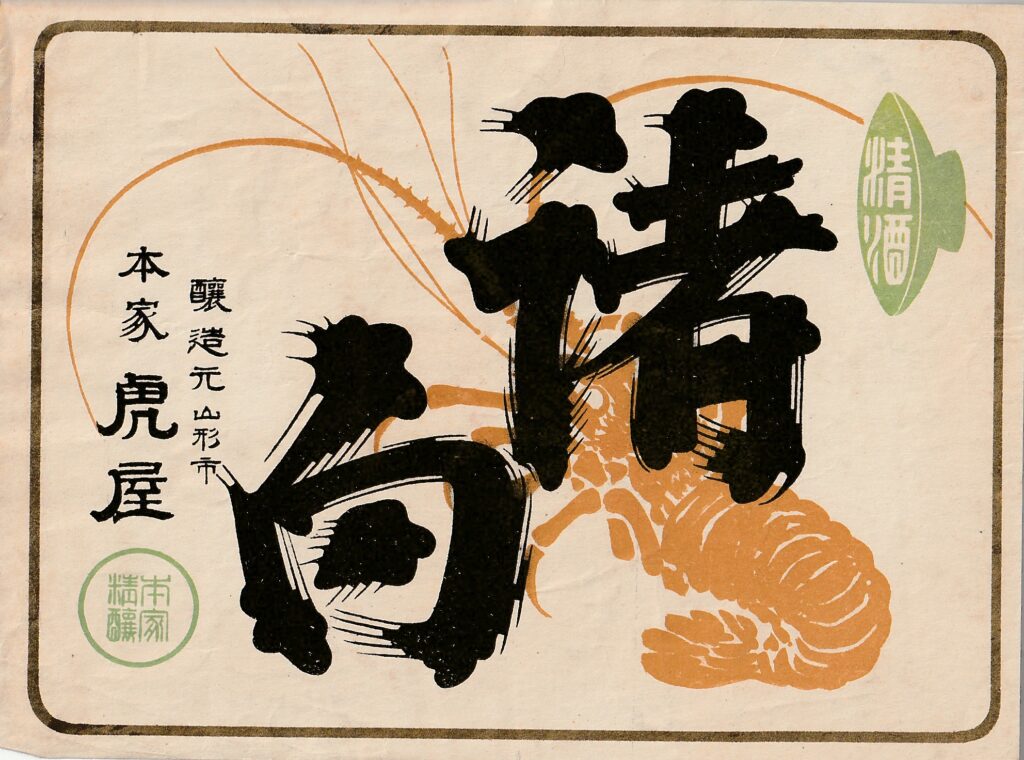 清酒
諸白
釀造元山形市
本家 虎屋
本家
精釀